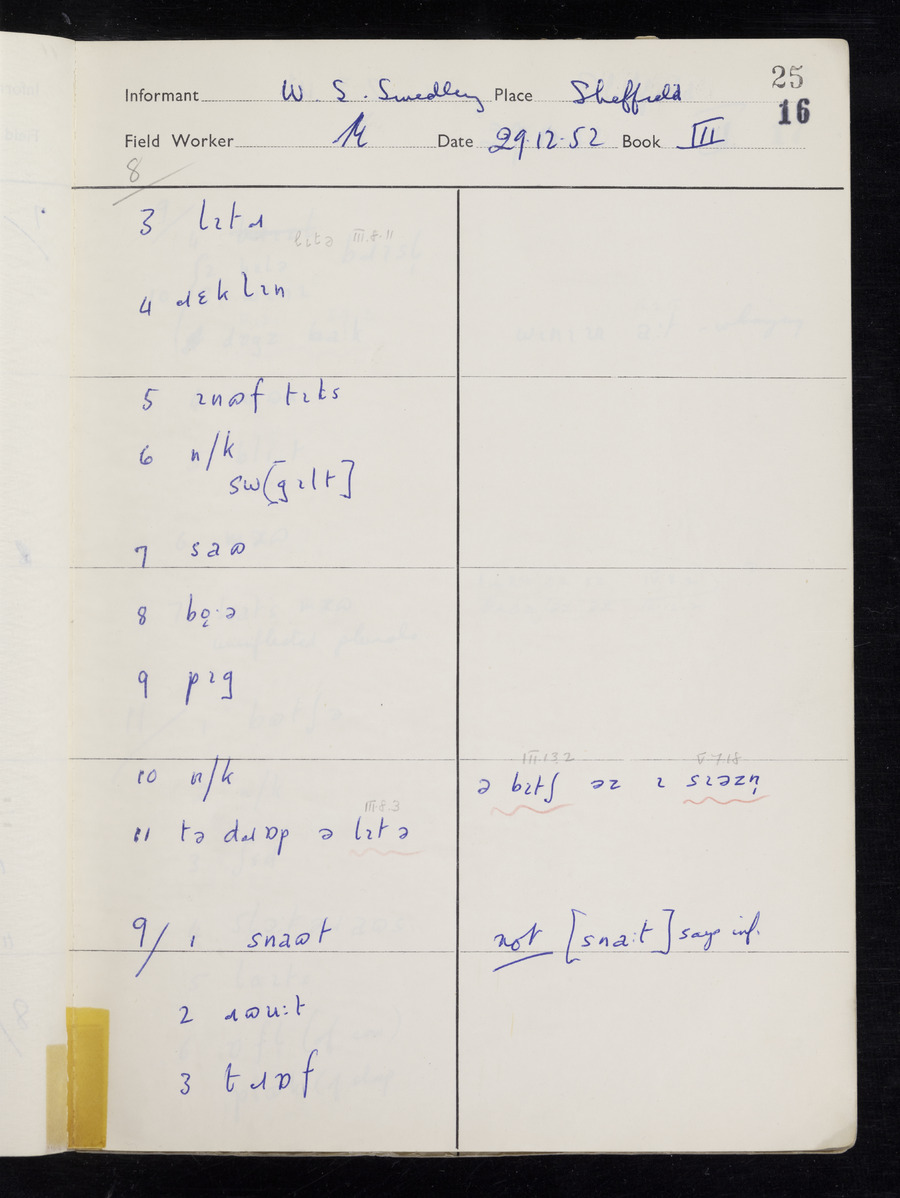 25
Informant W. S. Smedley Place Sheffield 16
Field Worker M Date 29.12.52 Book III
8/
3 lɪtɹ
lɪtə III.8.11
4 ɹɛklɪn
5 ɪnɷf tɪts
6 n/k
sw[gɪlt]
7 saɷ
8 bo̜·ə
9 pɪg
III.13.2 V.7.18
10 n/k ə bɪtʃ əz ɪ sɪəzn̩
III.8.3
11 tə dɹɒp ə lɪtə
9/ 1 snaɷt not [sna:t] says inf.
2 ɹɷu:t
3 tɹɒf